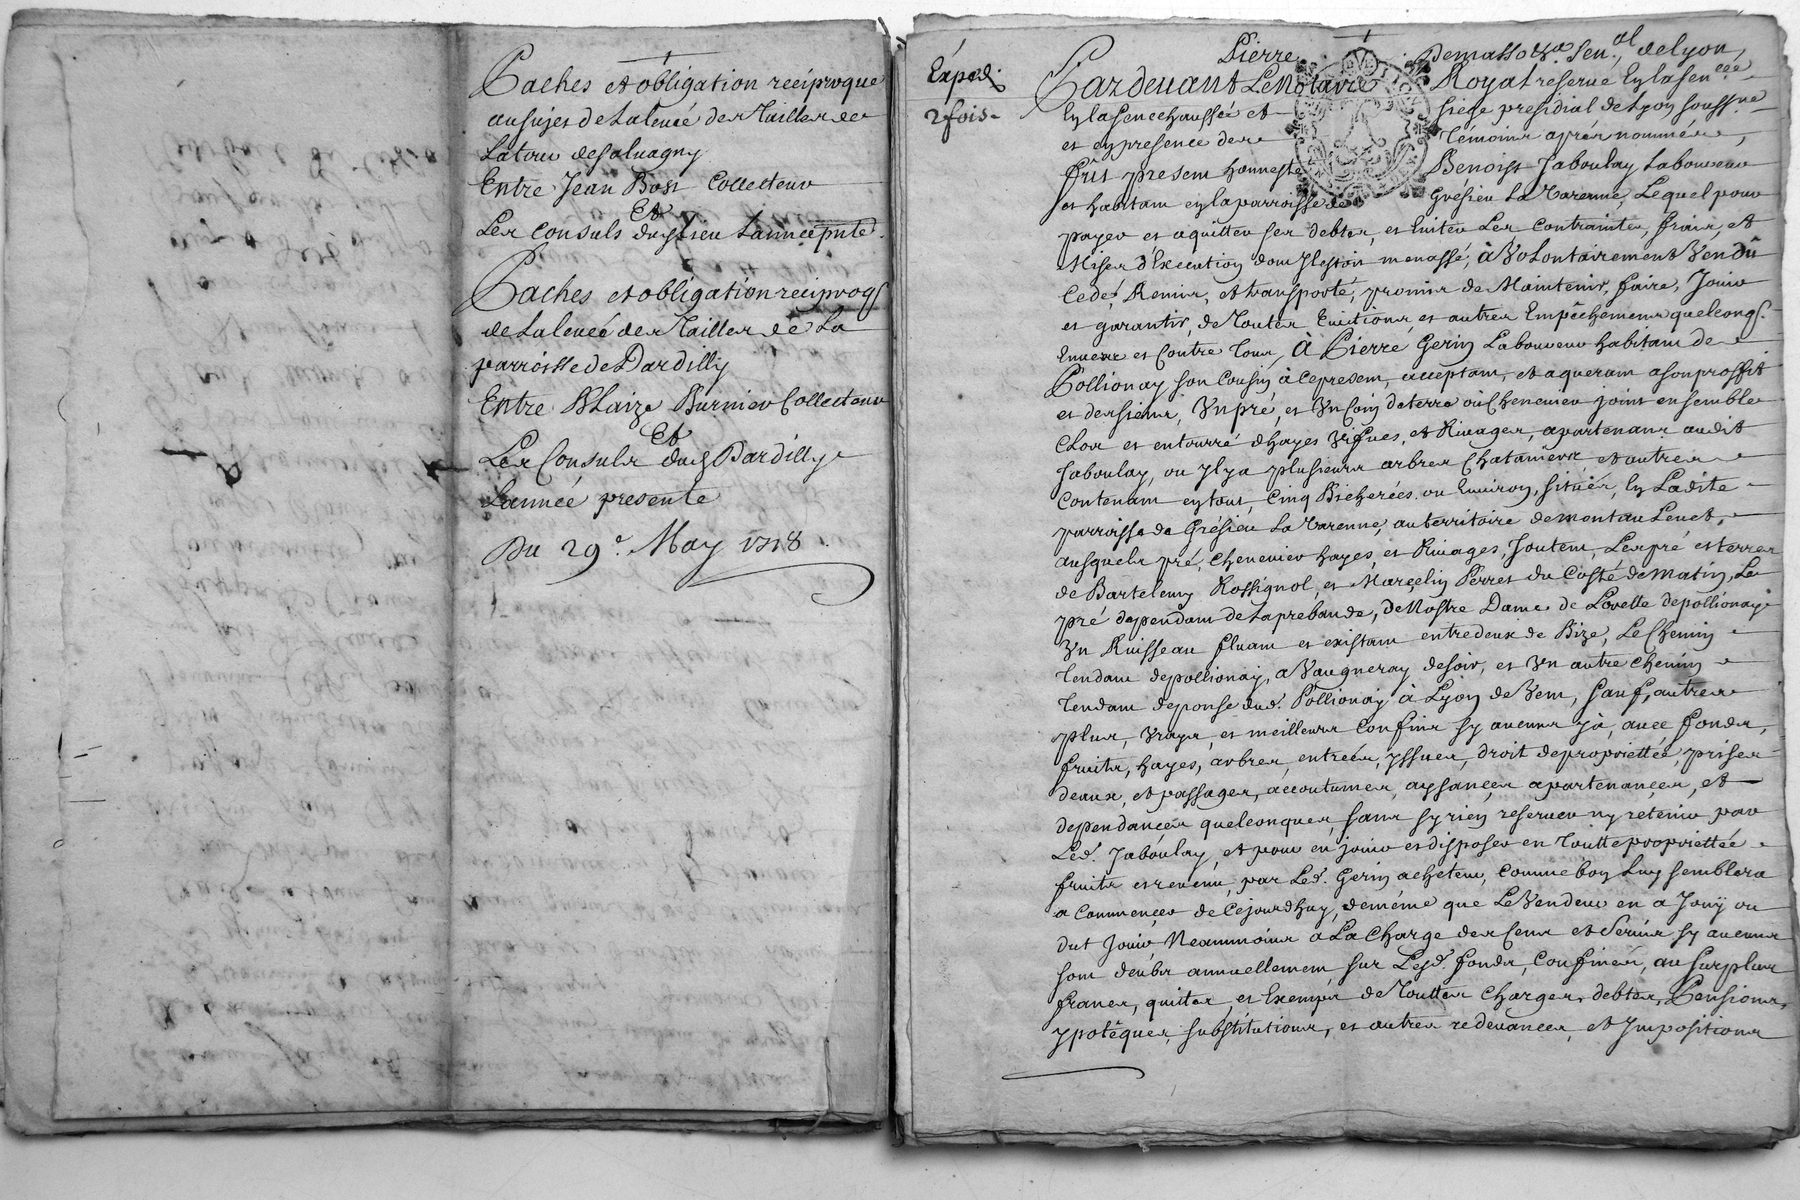 Paches et obligation reciproque
au sujet de La leveé des Tailles de
Latour de Salvagny
Entre Jean Bost Collecteur
Et
Les Consuls dud. Lieu Lannee pnte.
Paches et obligation reciproq.
de La leveé des Tailles de La
parroisse de Dardilly
Entre Blaize Burnier Collecteur
Et
Les Consuls dud. Dardilly
Lannée presente
Du 29e. May 1718
Expedi.
2 fois.
Pardevant Le Notaire Royal reservé En la sencee
Pierre Demasso &a. Sen.al de Lyon
En la senechaussée et siege presidial de Lyon soussné
et en presence des Témoins aprés nommés,
fût present honneste Benoist Jaboulay Laboureur
et habitant en la parroisse de Grésieu La Varenne, Lequel pour
payer et aquitter ses debtes, et Eviter Les Contraintes, frais, et
Mises d'Execution dont Il estoit menassé, à Volontairement Vendû
Cedé, Remis, et transporté, promis de Maintenir, faire, Jouir
et garantir, de Toutes Evictions, et autres Empêchemens quelconq.
Envers et Contre Tous, À Pierre Gerin Laboureur habitant de
Pollionay son Cousin à ce present, acceptant, et aquerant a son proffit
et des siens, Un pré, et Un Coin de terre ou Chenevier joint ensemble
Clos et entourré d'hayes Vifves, et Rivages, apartenant audit
Jaboulay, ou Il y a plusieurs arbres Chataniers, et autres
Contenant en tout, Cinq Bicherées ou Environ, situés, En Ladite
parroisse de Grésieu La Varenne, au territoire de
ausquels pré, Chenevier hayes, et Rivages, Joutent, Les pré et terres
de Bartelemy Rossignol, et Marcelin Perret du Costé de Matin, Le
pré dependant de La prebande, de Nostre Dame de Lorette de pollionay
Un Ruisseau fluant et existant entre deux de Bize, Le Chemin
Tendant de pollionay, a Vaugneray de soir, et Un autre Chemin
Tendant dud. Pollionay à Lyon de Vent, sauf, autres
plus, Vrays, et meilleurs Confins sy aucuns y à, avec fonds,
fruits, hayes, arbres, entrées, yssues, droit de propriettée, prises
deaux, et passages, accoutumés, aysances apartenances, et
dependances quelconques, sans sy rien reserver ny retenir par
Led. Jaboulay, et pour en jouir et disposer en Toutte propriettée
fruits et revenu, par Led. Gerin acheteur, Comme bon Luy semblera
a Commencer de Cejourdhuy, de même que Le Vendeur en a Jouÿ ou
dut Jouir Neammoins a La Charge des Cens et Servis sy aucuns
sont deubs annuellement sur Lesd. fonds, Confinés, au surplus
francs, quittes, et Exempts de Touttes Charges, debtes, Pensions,
ypotêques, substitutions, et autres redevances, et Impositions